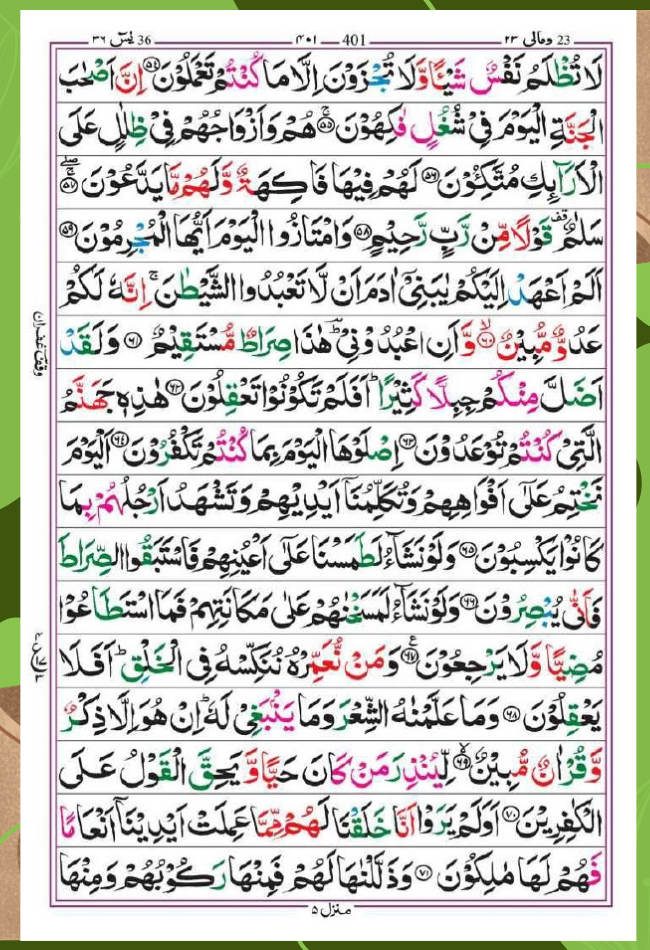 36 يٰسٓ ٣٦ — 401 — ٤٠١ — 23 ومالی ٢٣
لَا تُظْلَمُ نَفْسٌ شَيْئًا وَّلَا تُجْزَوْنَ اِلَّا مَا كُنْتُمْ تَعْمَلُوْنَ ﴿٥٤﴾ اِنَّ اَصْحٰبَ
الْجَنَّةِ الْيَوْمَ فِيْ شُغُلٍ فٰكِهُوْنَ ﴿٥٥﴾ هُمْ وَاَزْوَاجُهُمْ فِيْ ظِلٰلٍ عَلَى
الْاَرَآىِٕكِ مُتَّكِـُٔوْنَ ﴿٥٦﴾ لَهُمْ فِيْهَا فَاكِهَةٌ وَّلَهُمْ مَّا يَدَّعُوْنَ ﴿٥٧﴾
سَلٰمٌ قف قَوْلًا مِّنْ رَّبٍّ رَّحِيْمٍ ﴿٥٨﴾ وَامْتَازُوا الْيَوْمَ اَيُّهَا الْمُجْرِمُوْنَ ﴿٥٩﴾
اَلَمْ اَعْهَدْ اِلَيْكُمْ يٰبَنِيْٓ اٰدَمَ اَنْ لَّا تَعْبُدُوا الشَّيْطٰنَ ۚ اِنَّهٗ لَكُمْ
عَدُوٌّ مُّبِيْنٌ ﴿٦٠﴾ وَّاَنِ اعْبُدُوْنِيْ ؔ هٰذَا صِرَاطٌ مُّسْتَقِيْمٌ ﴿٦١﴾ وَلَقَدْ
وقف غفران
اَضَلَّ مِنْكُمْ جِبِلًّا كَثِيْرًا ؕ اَفَلَمْ تَكُوْنُوْا تَعْقِلُوْنَ ﴿٦٢﴾ هٰذِهٖ جَهَنَّمُ
الَّتِيْ كُنْتُمْ تُوْعَدُوْنَ ﴿٦٣﴾ اِصْلَوْهَا الْيَوْمَ بِمَا كُنْتُمْ تَكْفُرُوْنَ ﴿٦٤﴾ اَلْيَوْمَ
نَخْتِمُ عَلٰٓى اَفْوَاهِهِمْ وَتُكَلِّمُنَآ اَيْدِيْهِمْ وَتَشْهَدُ اَرْجُلُهُمْ بِمَا
كَانُوْا يَكْسِبُوْنَ ﴿٦٥﴾ وَلَوْ نَشَآءُ لَطَمَسْنَا عَلٰٓى اَعْيُنِهِمْ فَاسْتَبَقُوا الصِّرَاطَ
فَاَنّٰى يُبْصِرُوْنَ ﴿٦٦﴾ وَلَوْ نَشَآءُ لَمَسَخْنٰهُمْ عَلٰى مَكَانَتِهِمْ فَمَا اسْتَطَاعُوْا
مُضِيًّا وَّلَا يَرْجِعُوْنَ ﴿٦٧﴾ وَمَنْ نُّعَمِّرْهُ نُنَكِّسْهُ فِي الْخَلْقِ ؕ اَفَلَا
يَعْقِلُوْنَ ﴿٦٨﴾ وَمَا عَلَّمْنٰهُ الشِّعْرَ وَمَا يَنْۢبَغِيْ لَهٗ ؕ اِنْ هُوَ اِلَّا ذِكْرٌ
وَّقُرْاٰنٌ مُّبِيْنٌ ﴿٦٩﴾ لِّيُنْذِرَ مَنْ كَانَ حَيًّا وَّيَحِقَّ الْقَوْلُ عَلَى
الْكٰفِرِيْنَ ﴿٧٠﴾ اَوَلَمْ يَرَوْا اَنَّا خَلَقْنَا لَهُمْ مِّمَّا عَمِلَتْ اَيْدِيْنَآ اَنْعَامًا
فَهُمْ لَهَا مٰلِكُوْنَ ﴿٧١﴾ وَذَلَّلْنٰهَا لَهُمْ فَمِنْهَا رَكُوْبُهُمْ وَمِنْهَا
منزل ٥